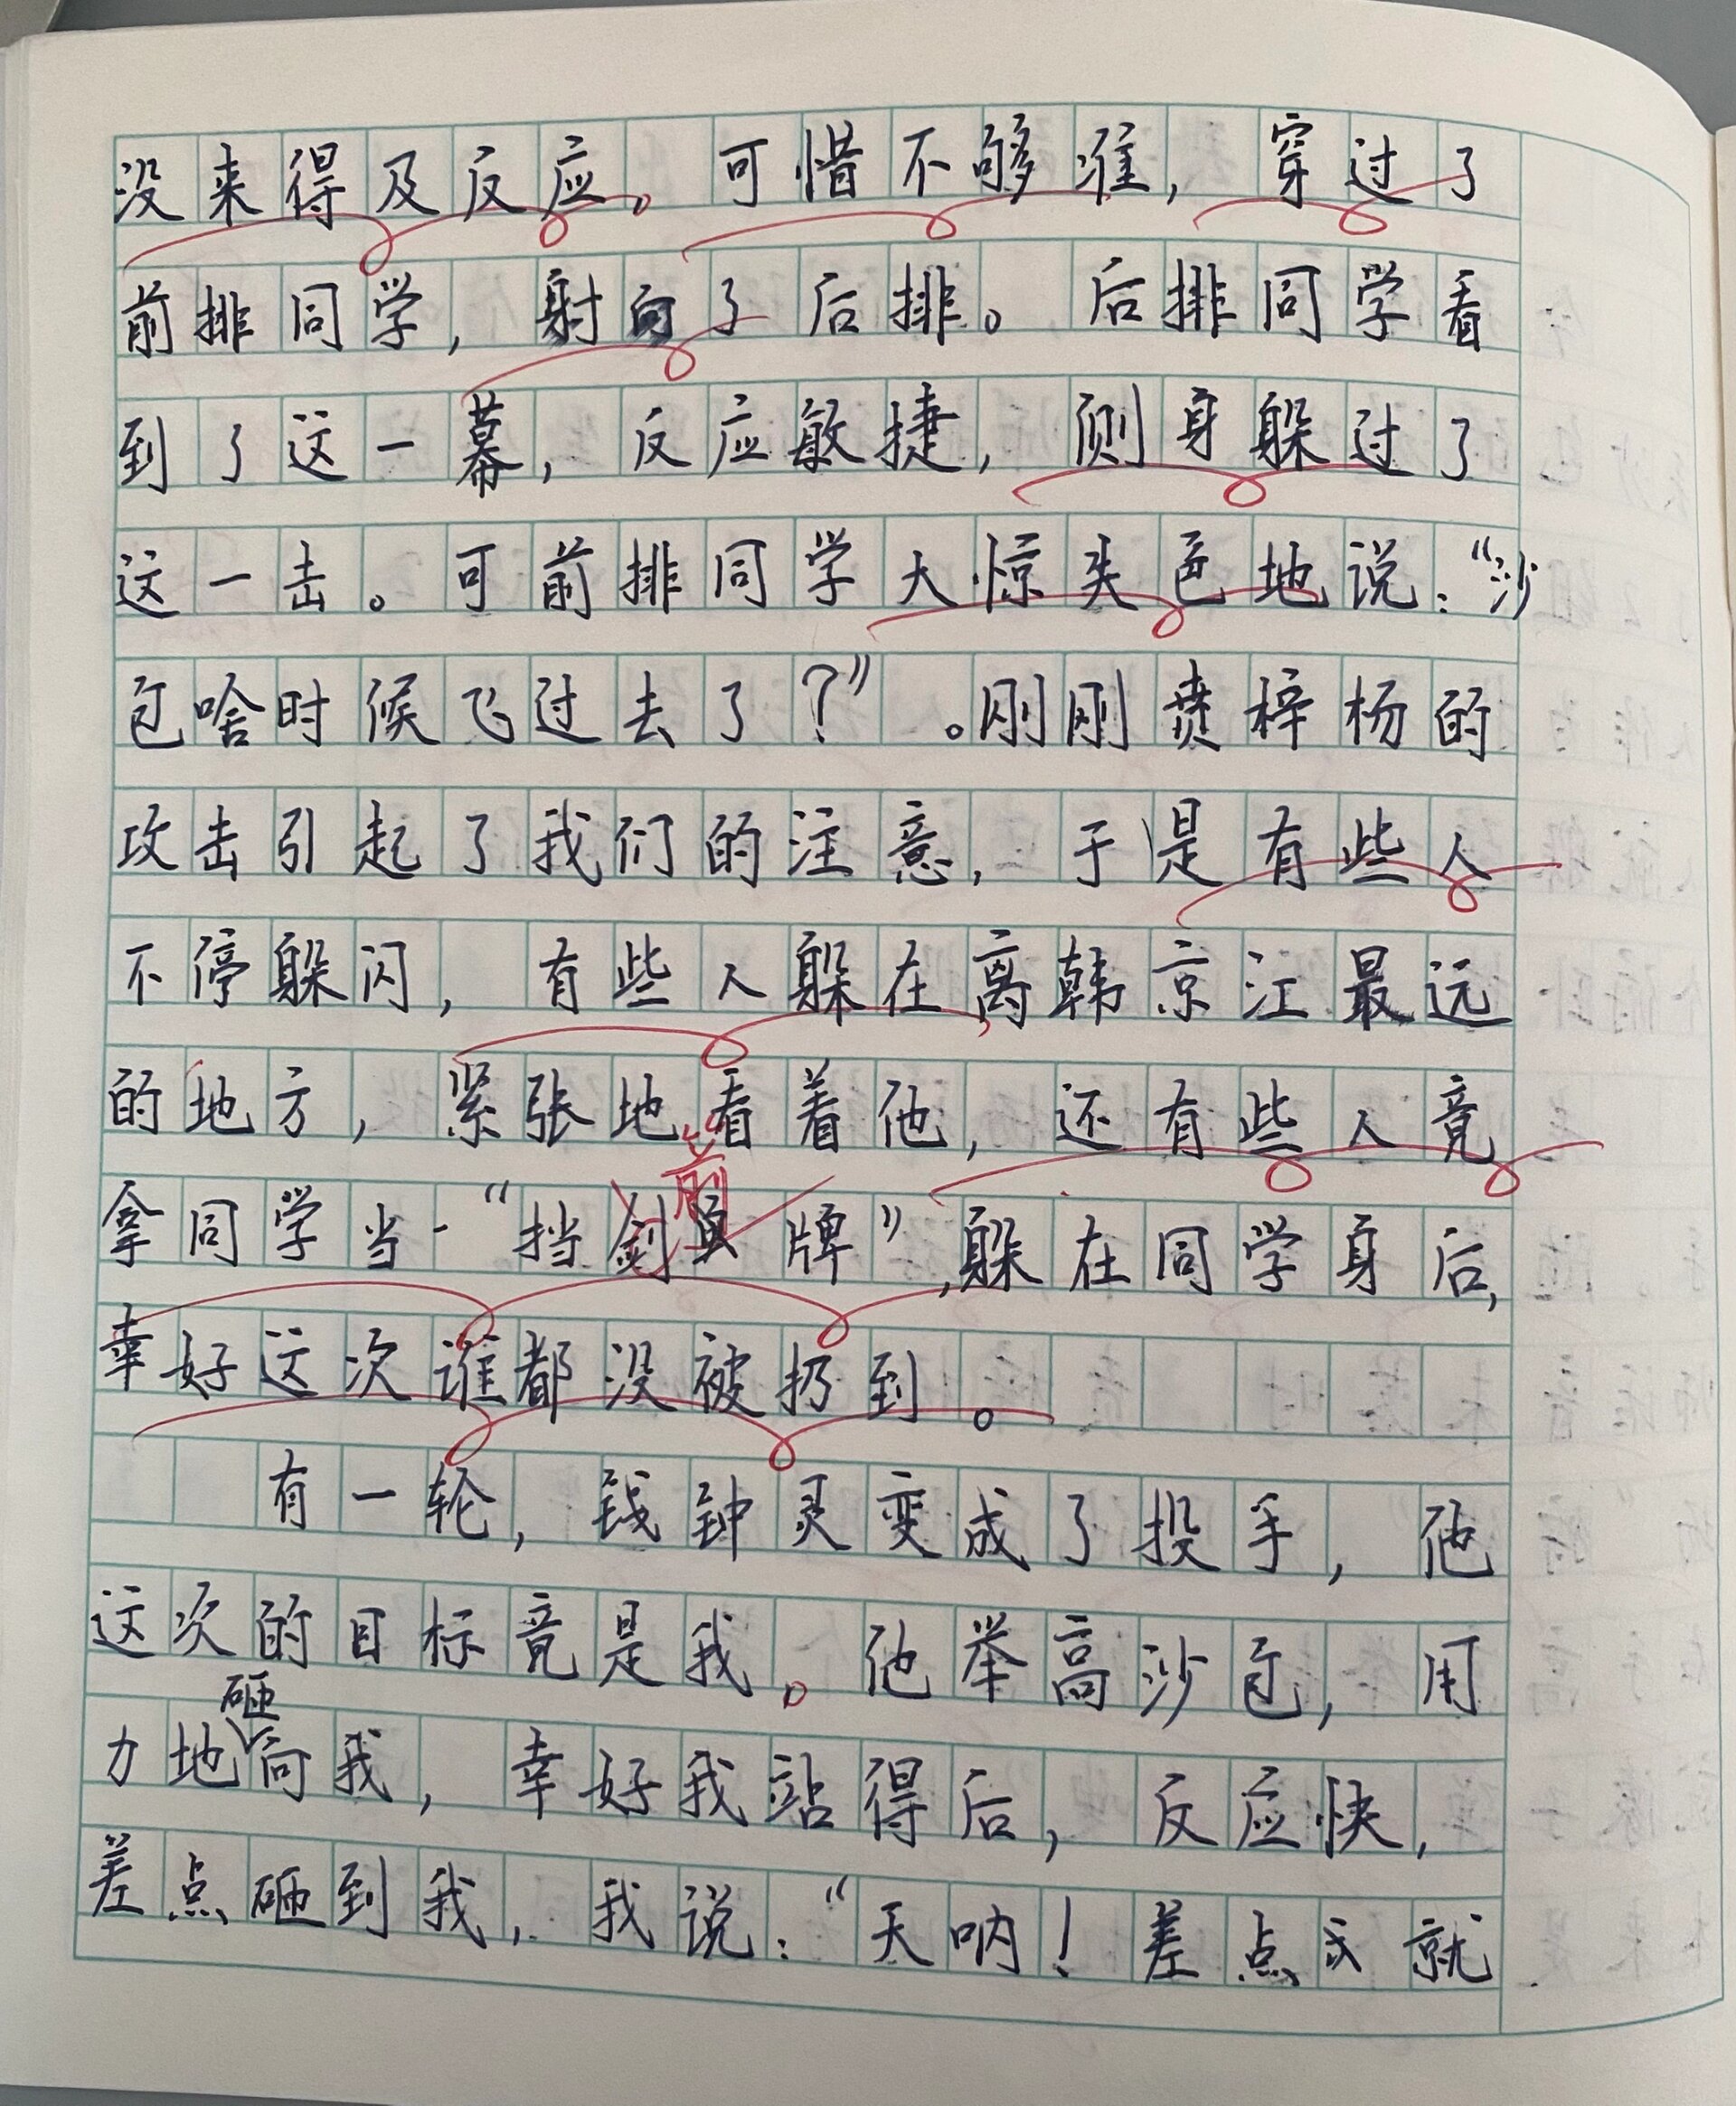 没来得及反应。可惜不够准，穿过了
前排同学，射向了后排。后排同学看
到了这一幕，反应敏捷，侧身躲过了
这一击。可前排同学大惊失色地说：“沙
包啥时候飞过去了？”。刚刚贲梓杨的
攻击引起了我们的注意，于是有些人
不停躲闪，有些人躲在离韩京江最远
的地方，紧张地看着他，还有些人竟
箭
拿同学当“挡剑牌”，躲在同学身后，
幸好这次谁都没被扔到。
有一轮，钱钟灵变成了投手，他
这次的目标竟是我。他举高沙包，用
砸
力地向我，幸好我站得后，反应快，
差点砸到我，我说：“天呐！差点就